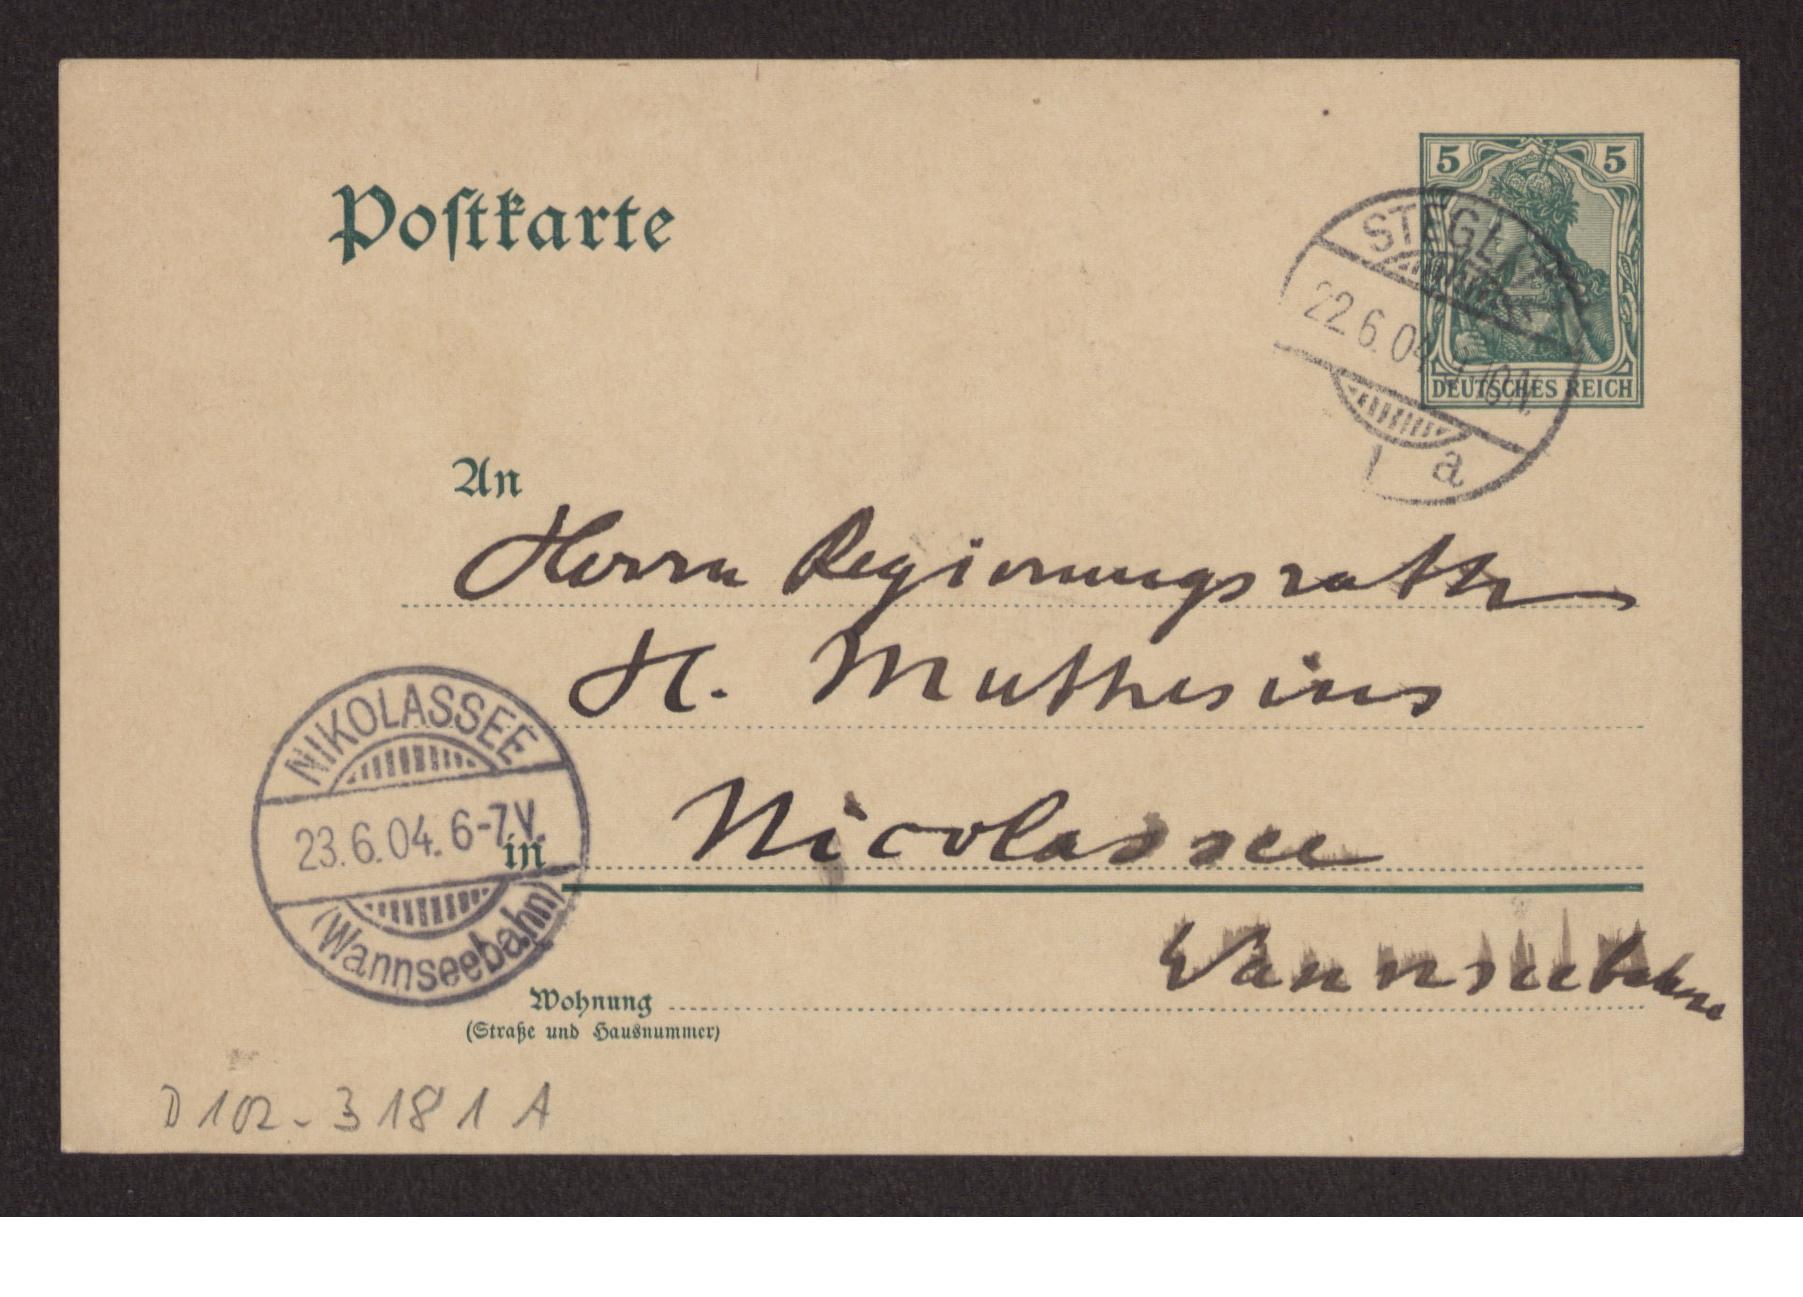 Postkarte
5 5
DEUTSCHES REICH
STEGLITZ
22.6.04. 9-10N.
1 a
An
Herrn Regierungsrath
H. Muthesius
NIKOLASSEE
23.6.04. 6-7V.
(Wannseebahn)
in Nicolassee
Wannseebahn
Wohnung
(Straße und Hausnummer)
D 102-3181 A